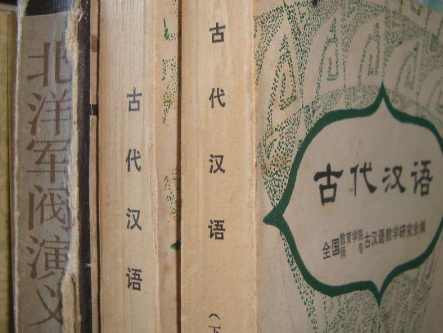 北洋军阀演义
古代汉语
古代汉语
(下
古代汉语
全国教育学院师专古汉语教学研究会编